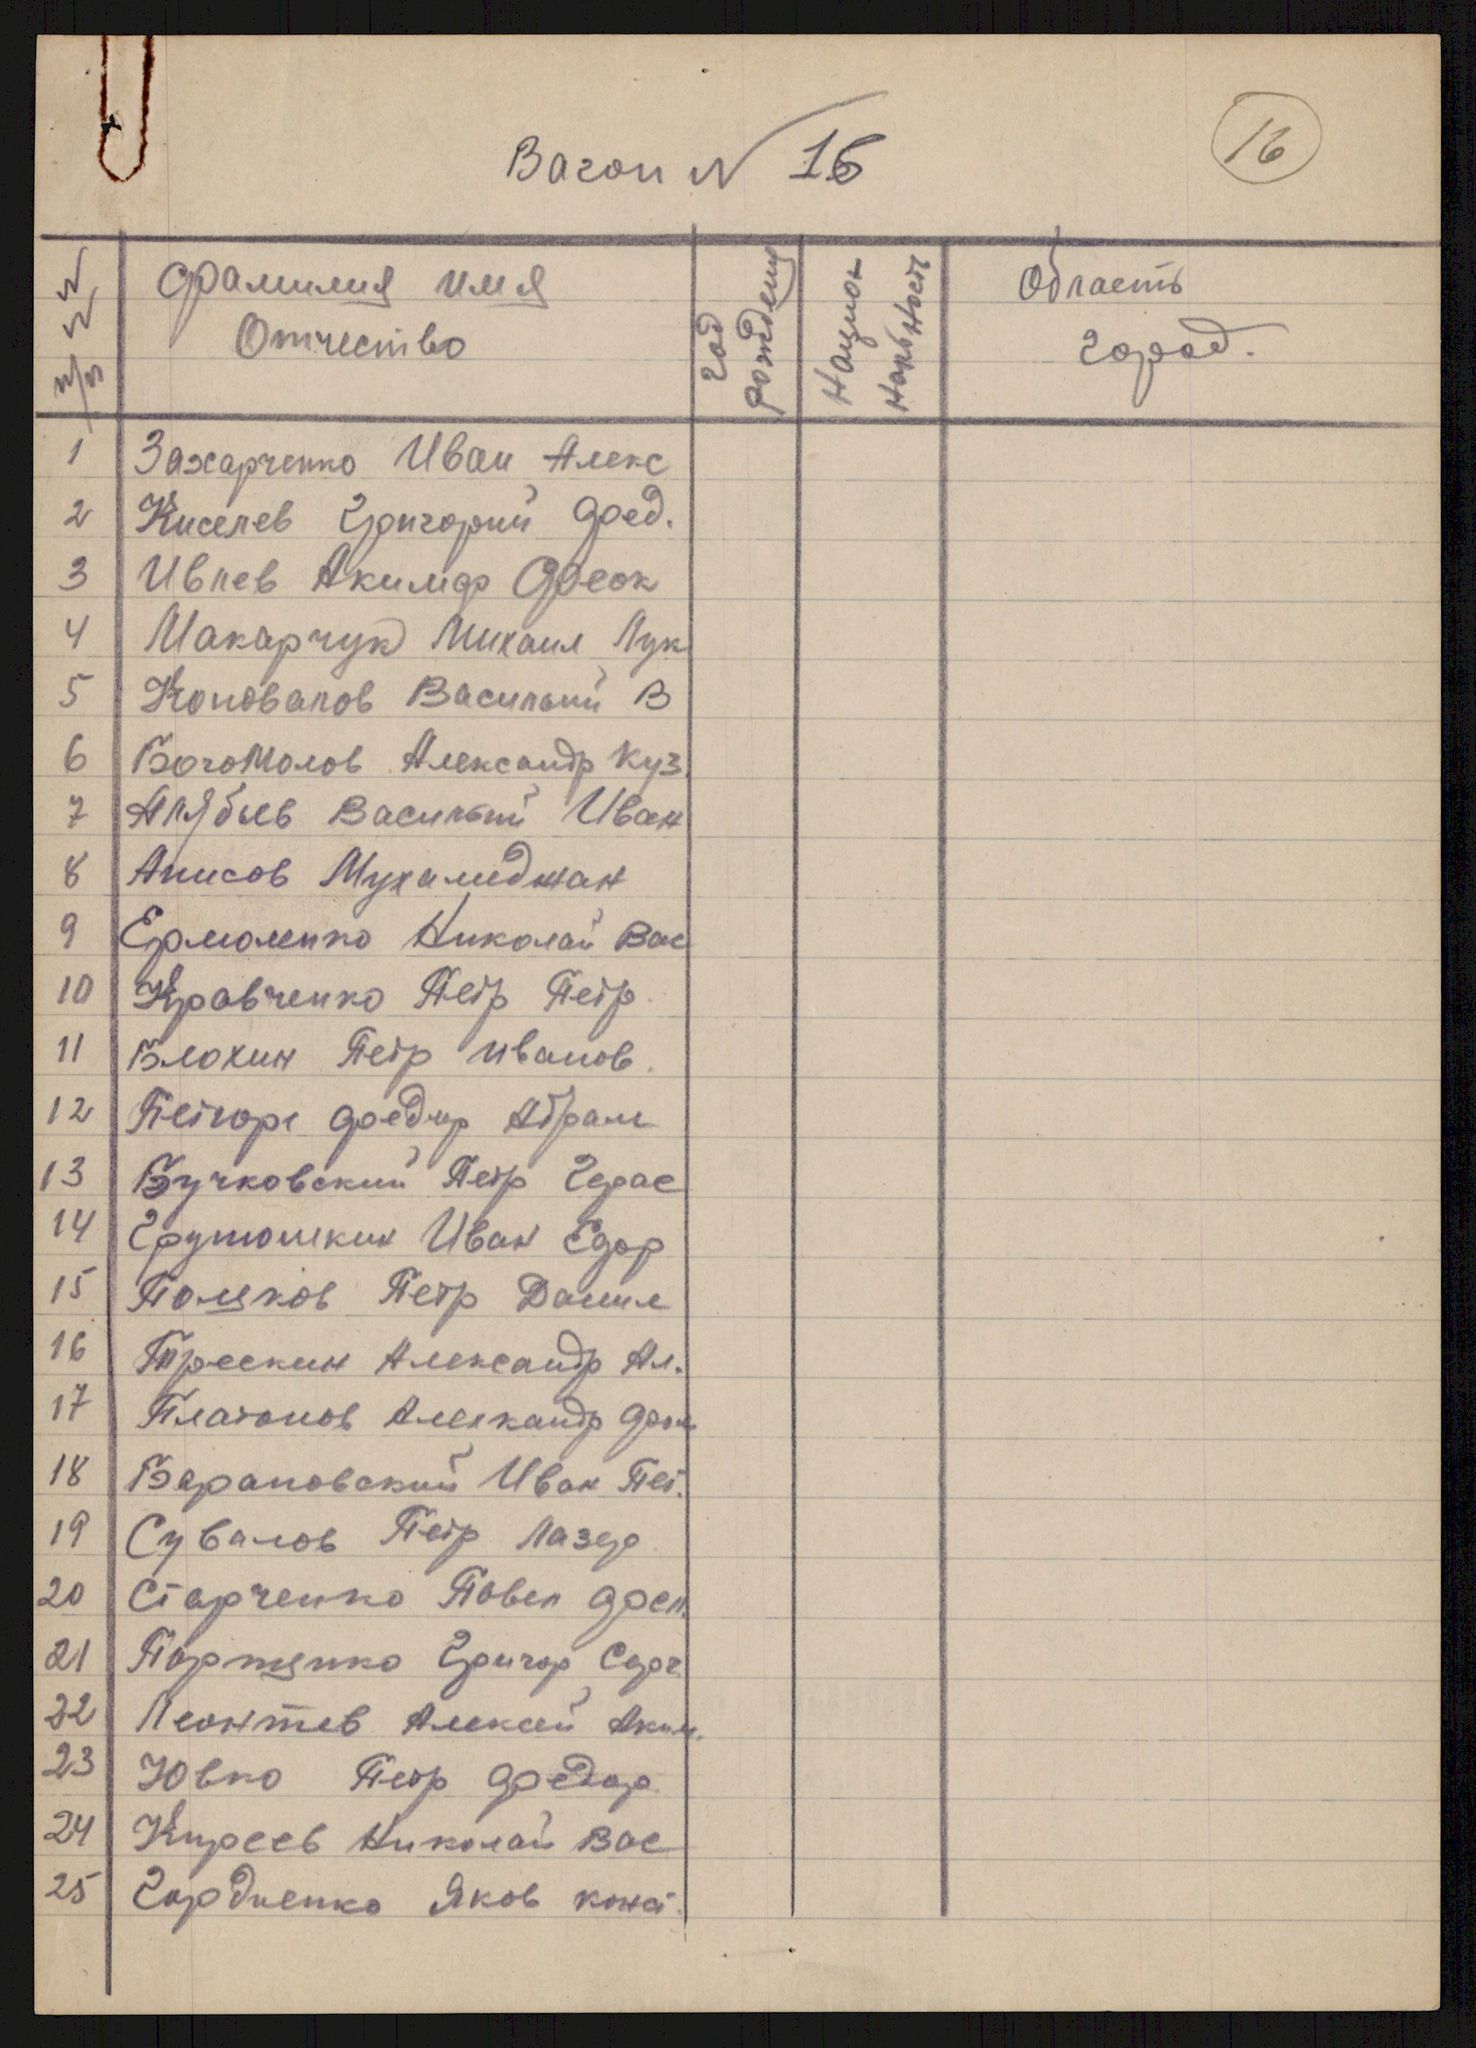 16
Вагон № 16
№ № п/п
Фамилия имя
Отчество
Год рождения
Национальность
Область
город.
1 Захарченко Иван Алекс
2 Киселев Григорий Фед.
3 Ивлев Акимф Феок
4 Макарчук Михаил Лук
5 Коновалов Василий В
6 Богомолов Александр Куз.
7 Алябьев Василий Иван
8 Анисов Мухамеджан
9 Ермоленко Николай Вас
10 Кравченко Петр Петр.
11 Блохин Петр Иванов.
12 Федор Абрам
13 Бучковский Петр Герас
14 Грутюшкин Иван Егор
15 Поляков Петр Данил
16 Трескин Александр Ал.
17 Платонов Александр
18 Барановский Иван Пет.
19 Сувалов Петр Лазар
20 Старченко Павел
21 Григор Серг.
22 Леонтев Алексей Аким.
23 Ювко Петр Федор.
24 Киреев Николай Вас
25 Гордиенко Яков конст.